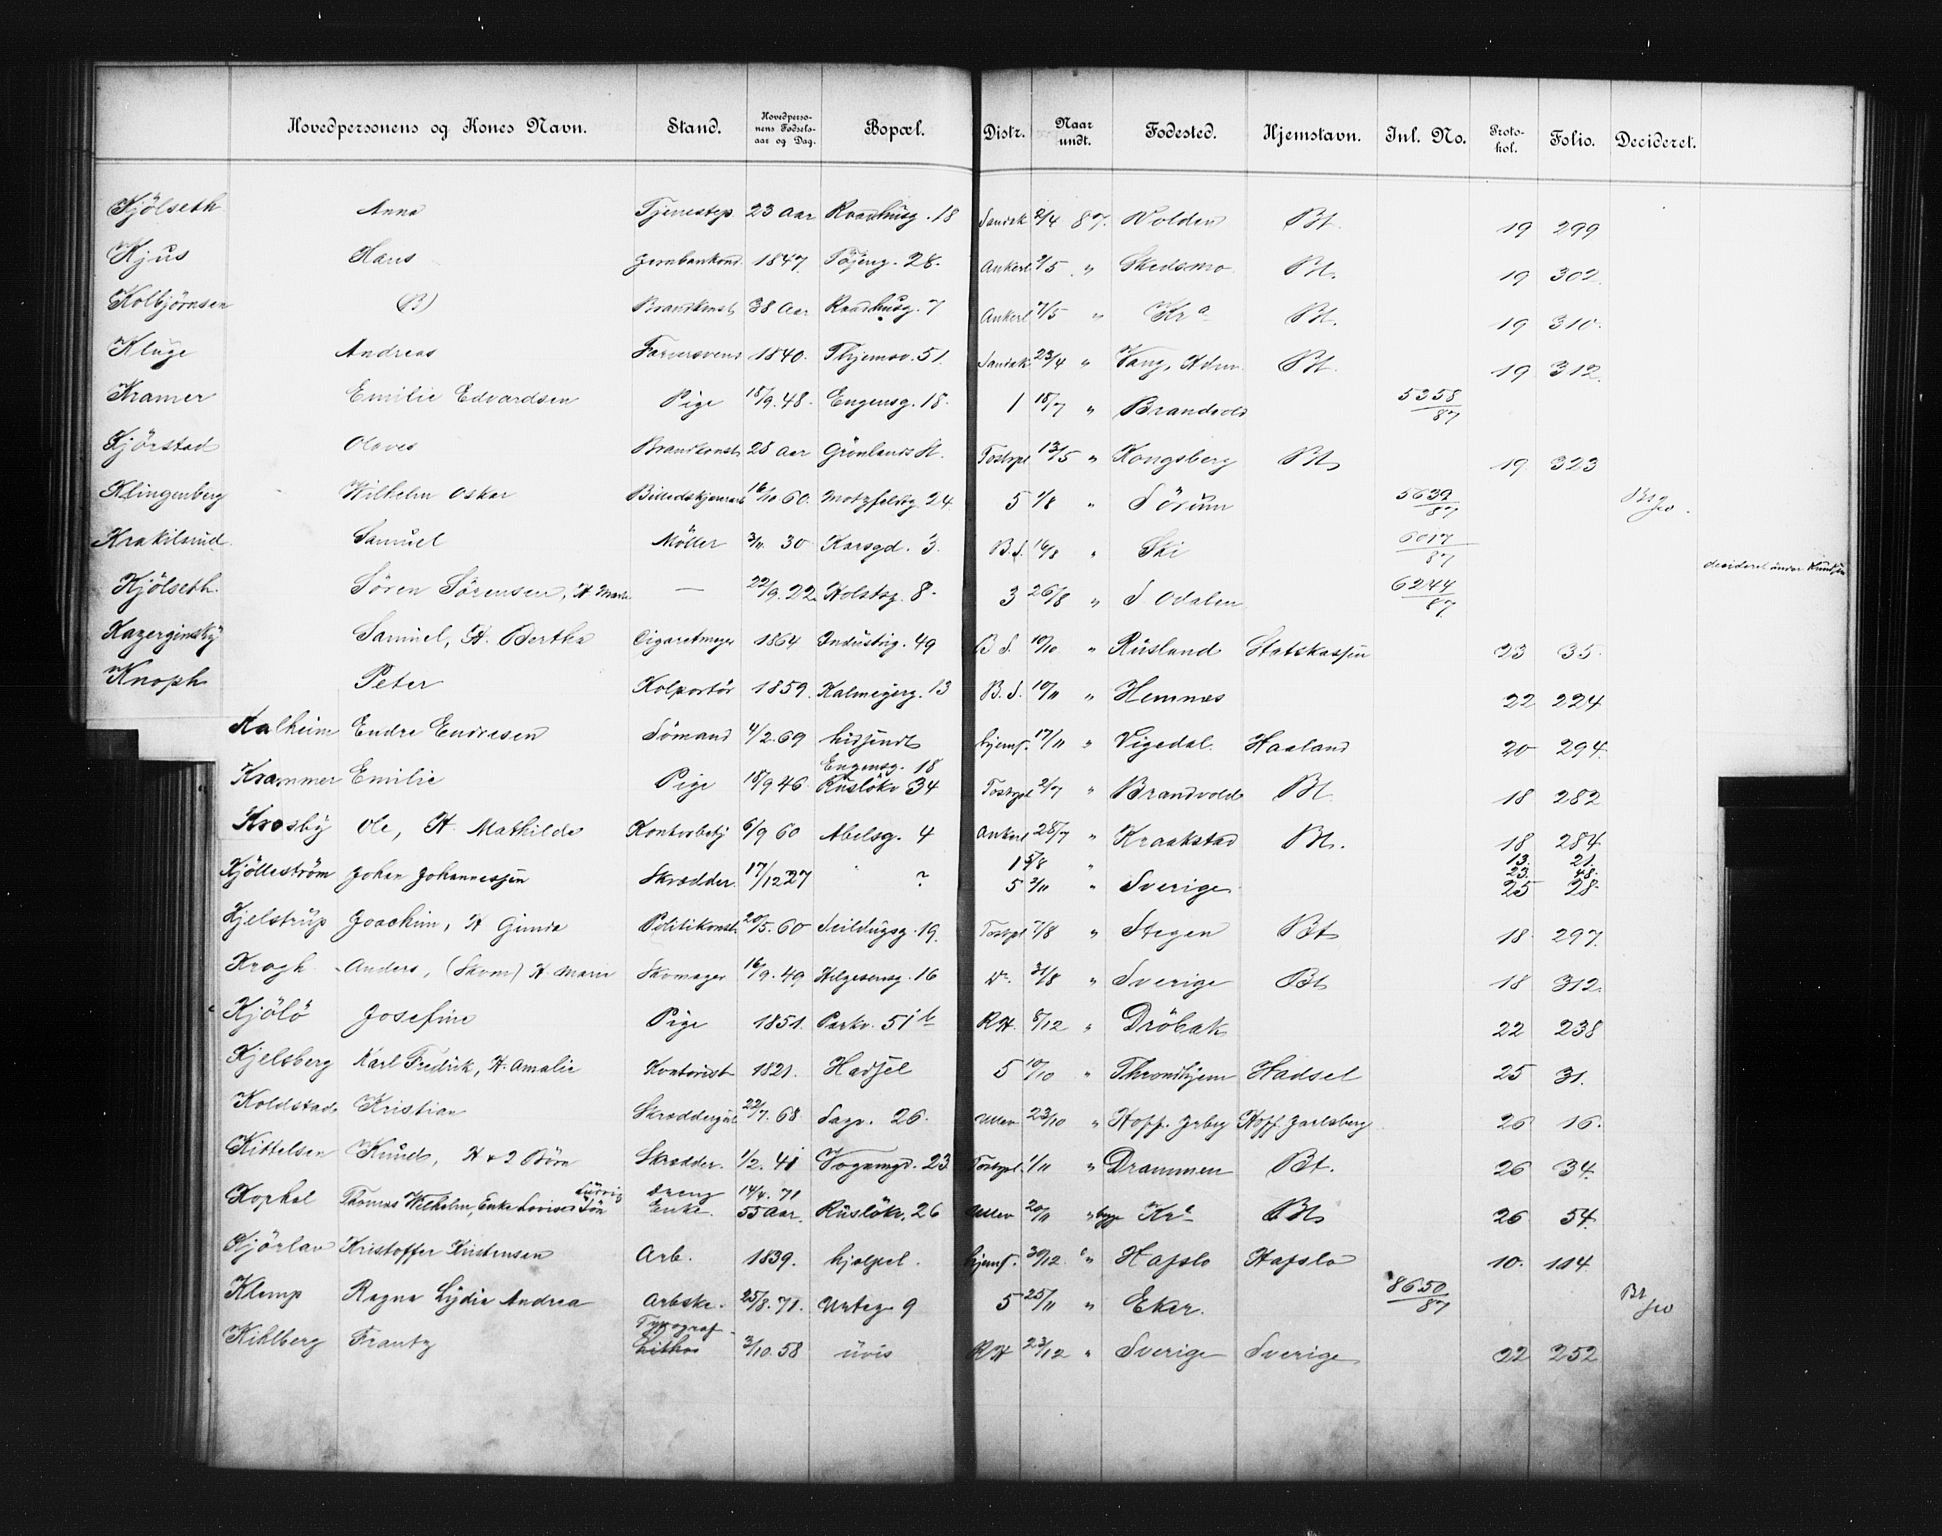 Hovedpersonens og Kones Navn. Stand. Hovedperso- nens Fødsels- aar og Dag. Bopæl. Distr. Naar undt. Fødested. Hjemstavn. Inl. No. Proto- kol. Folio. Decideret.
Kjölseth Anna Tjenestep 23 Aar Raadhusg. 18 Sandak 2/4 87. Volden Bt. 19 299
Kjus Hans Jernbankond 1847. Töjeng. 28. Ankerl 2/5 " Skedsmo Bt. 19 302
Kolbjørnsen (B) Brandkonst 38 Aar Raadhusg. 7 Ankerl 7/5 " Kra Bt. 19 310.
Kluge Andreas Farversvend 1840. Thjemsv. 51. Sandak 23/4 " Vang, Hdm Bt. 19 312.
Kramer Emilie Edvardsen Pige 18/9. 48. Engensg. 18. 1 18/7 " Brandvold 5358/87
Kjörstad Olaves Brandkonst 28 Aar Grönlands St. Tostrpl 13/5 " Kongsberg Bt 19. 323
Klingenberg Wilhelm Oskar Billedskjærer 16/10 60. Motzfeldtg. 24. 5 1/8 " Sörum 5639/87
Krakilsrud Samuel Möller 3/11 30 Karsgd. 3. B.S. 16/8 " Ski 6017/87
decideret under Knudsen
Kjölseth Sören Sörensen, H Marie — 22/9. 22. Holstsg. 8. 3 26/8 " S. Odalen 6244/87
Kazerginsky Samuel, H. Bertha Cigaretmager 1864 Industrig. 49 B S. 10/10 " Rusland Statskassen 23 35.
Knoph Peter Kolportör 1859. Kalmeyerg. 13 B. S. 10/11 " Hemnæs 22 224
Kalheim Endre Endresen Sömand 4/2. 69 hidsendt hjemf. 17/11 " Vigedal. Haaland 20 294.
Engensg. 18
Krammer Emilie Pige 18/9 46 Rusløkv 34 Tostrpl 2/7 " Brandvold Bt 18 282
Krosby Ole, H. Mathilde Kontorbetj 6/9 60 Abelsg. 4 Ankerl 28/7 " Kraakstad Bt. 18 284
1 5/8 " 13. 21.
23. 48.
Kjölleström Johan Johannessen Skrædder 17/12 27 ? 5 3/11 " Sverige 25 28.
Kjelstrup Joachim, H Gunda Politikonst. 20/5. 60 Seildugsg. 19. Tostrpl. 7/8 " Stegen Bt 18. 297.
Krogh Anders, (Skom) H. Marie Skomager 16/9. 49 Helgesensg. 16 Do. 31/8 " Sverige Bt 18 312.
Kjölö Josefine Pige 1851. Parkv. 51 b RH. 8/12 " Dröbak 22 238
Kjelsberg Karl Fredrik, H. Amalie Kontorist 1821. Hadsel 5 10/10 " Throndhjem Hadsel 25 31.
Koldstad Kristian Skræddersv 22/7. 68. Sagv. 26. Ullev 23/10 " Hoff. Jrbg Hoff. Jarlsberg 26 16.
Kittelsen Knud, H & 2 Börn Skrædder. 1/2. 41 Vognmgd. 23 Tostrpl. 1/11 " Drammen Bt. 26 34.
Ludvig dreng 14/4. 71
Kophal Thomas Wilhelm, Enke Lovise Sön Enke. 55 Aar. Rusløkv. 26 Ullev 20/11 " Kra Bt 26 54.
Kjörlav Kristoffer Kristensen Arb. 1839. hjulpet. hjemf. 30/12 " Hafslo Hafslo 10. 114.
Klemp Ragna Lydia Andrea Arbske. 25/8. 71. Urteg. 9 5 25/11 " Eker. 8650/87
Typograf
Kihlberg Frantz Litho 3/10. 58 uvis RH 23/12 " Sverige Sverige 22 252